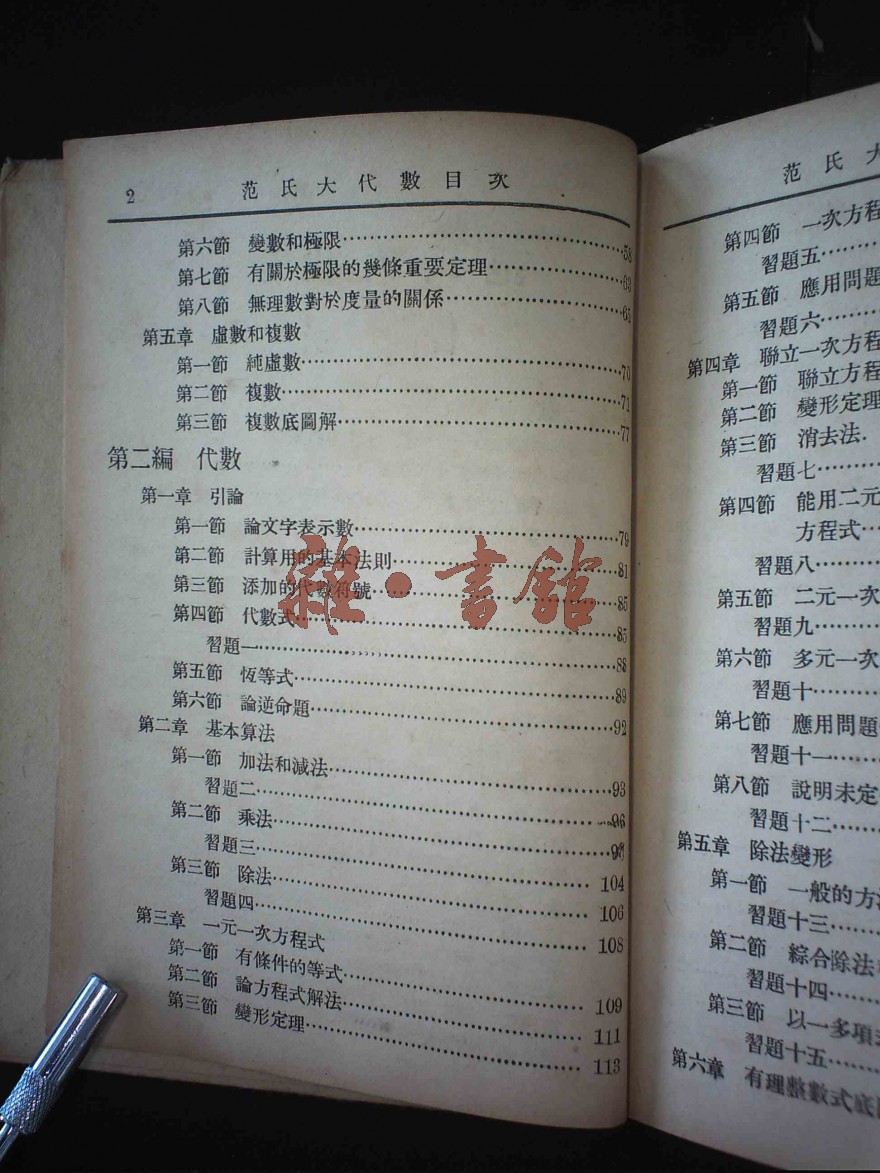 2 范氏大代數目次
第六節 變數和極限………58
第七節 有關於極限的幾條重要定理………63
第八節 無理數對於度量的關係………65
第五章 虛數和複數
第一節 純虛數………70
第二節 複數………71
第三節 複數底圖解………77
第二編 代數
第一章 引論
第一節 論文字表示數………79
第二節 計算用的基本法則………81
第三節 添加的代數符號………85
第四節 代數式………85
習題一………88
第五節 恆等式………89
第六節 論逆命題………92
第二章 基本算法
第一節 加法和减法………93
習題二………96
第二節 乘法………97
習題三………104
第三節 除法………106
習題四………108
第三章 一元一次方程式
第一節 有條件的等式………109
第二節 論方程式解法………111
第三節 變形定理………113
雜·書館
范氏大
第四節 一次方程
習題五………
第五節 應用問題
習題六………
第四章 聯立一次方程
第一節 聯立方程
第二節 變形定理
第三節 消去法
習題七………
第四節 能用二元
方程式…
習題八………
第五節 二元一次
習題九………
第六節 多元一次
習題十………
第七節 應用問題
習題十一………
第八節 說明未定
習題十二………
第五章 除法變形
第一節 一般的方
習題十三………
第二節 綜合除法
習題十四………
第三節 以一多項
習題十五………
第六章 有理整數式底